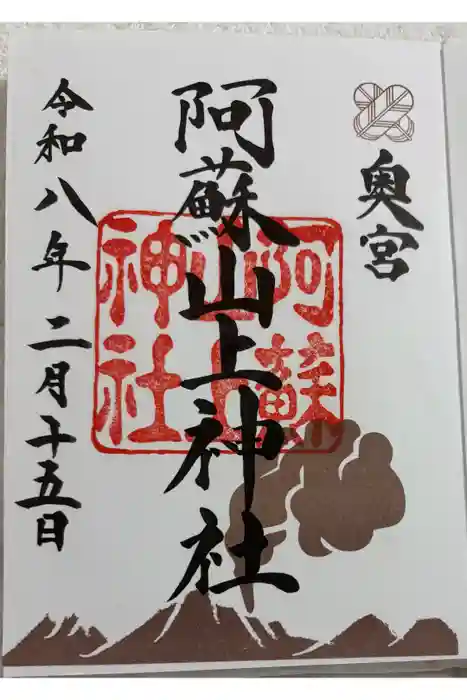 奥宮
阿蘇山上神社
令和八年二月十五日
阿蘇
山上
神社